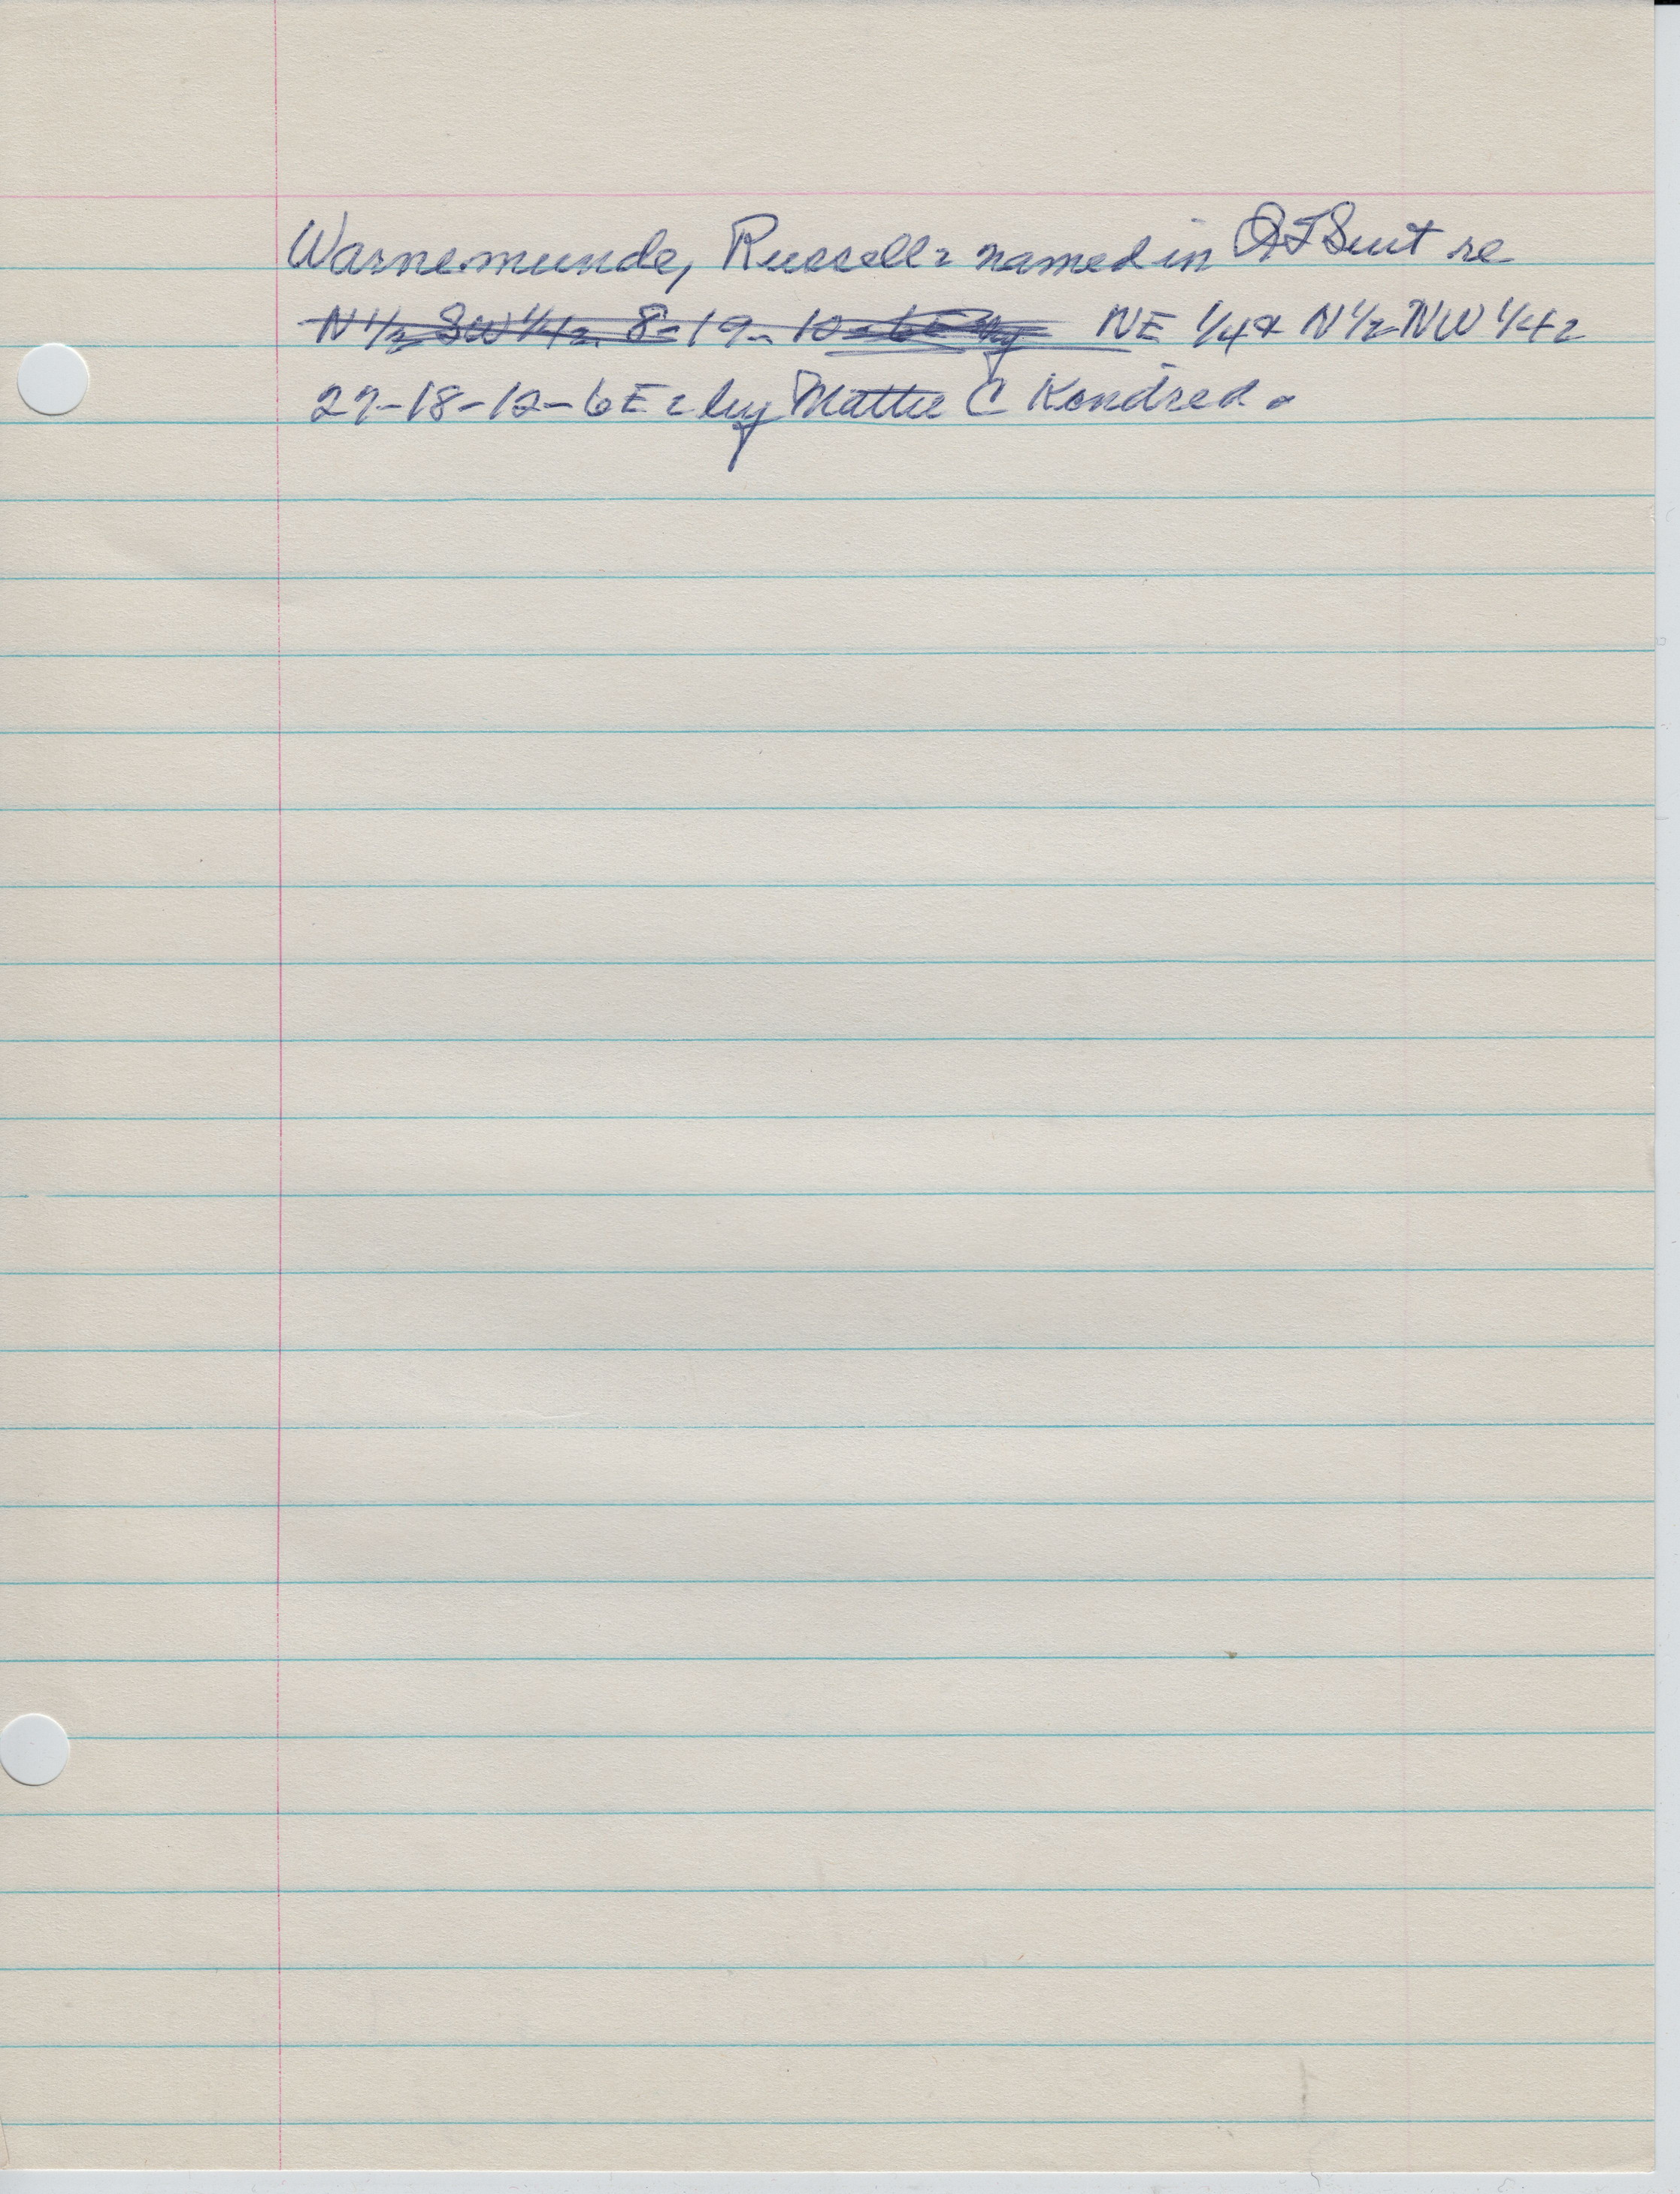 Warnemunde, Russell = named in QT Suit re
N 1/2 SW 1/4 = 8-19-10-6E = by NE 1/4 & N 1/2 NW 1/4 =
27-18-12-6E = by Mattie C Kendred.